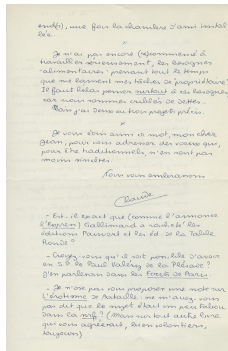 end(s), une fois la chambre d'ami instal-
lée.
*
Je n'ai pas encore (re)commencé à
travailler sérieusement, les besognes
"alimentaires" prenant tout le temps
que me laissent mes tâches de "propriétaire".
Il faut hélas penser surtout à ces besognes
car nous sommes criblés de dettes.
Mais j'ai deux ou trois projets précis.
*
Je vous écris ainsi ce mot, mon cher
Jean, pour vous adresser des vœux qui,
pour être traditionnels, n'en sont pas
moins sincères.
Nous vous embrassons
Claude
- Est-il exact que (comme l'annonce
l'Express) Gallimard a racheté les
éditions Pauvert et les éd. de la Table
Ronde ?
- Croyez-vous qu'il soit possible d'avoir
en S.P. le Paul Valéry de la Pléiade ?
J'en parlerais dans les
- Je n'ose pas vous proposer une note sur
L'érotisme de Bataille : ne m'avez-vous
pas dit que le sujet était un peu tabou
dans la nrf ? (Mais sur tout autre livre
qui vous agréerait, bien volontiers,
toujours)